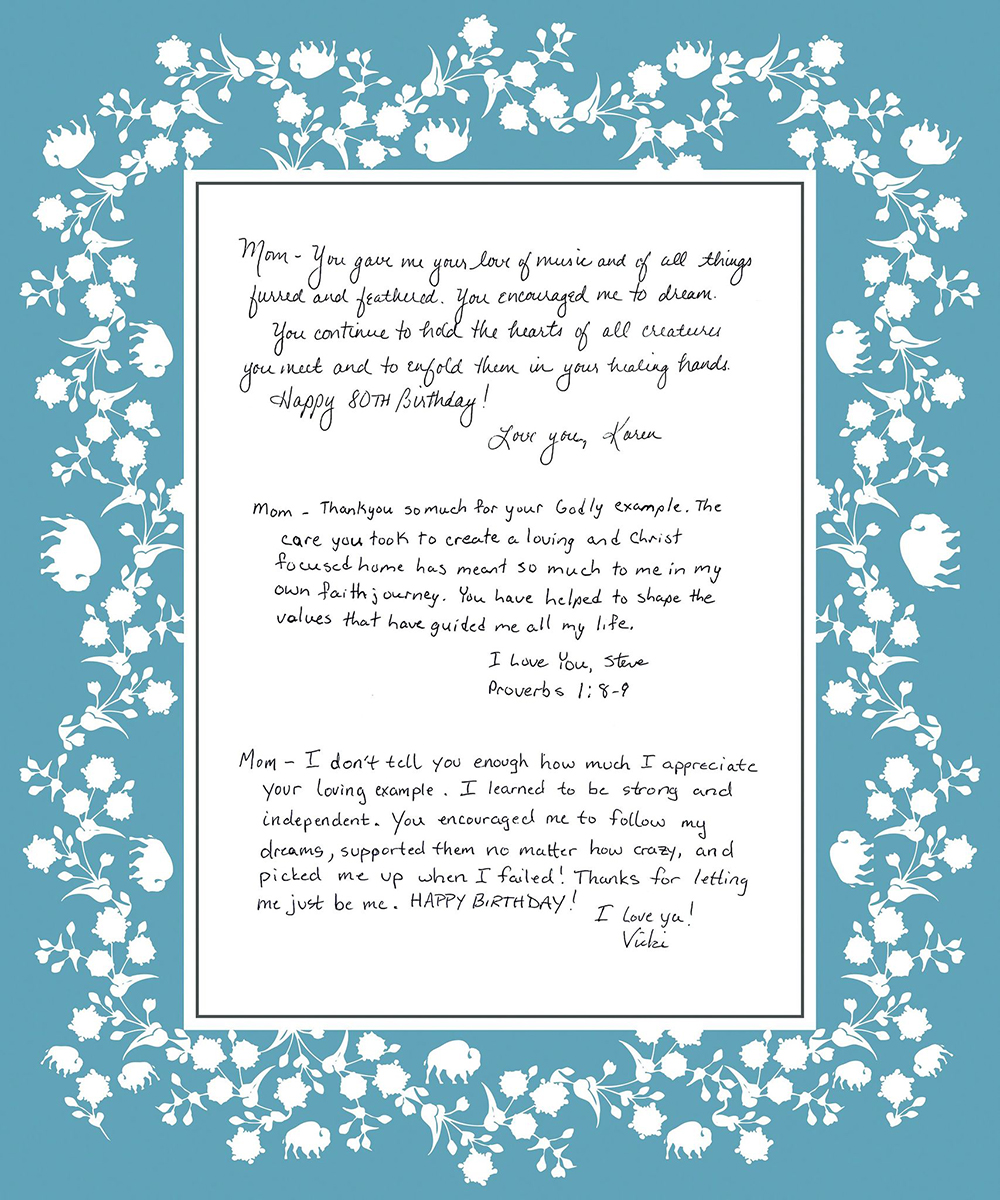 Mom - You gave me your love of music and of all things
furred and feathered. You encouraged me to dream.
You continue to hold the hearts of all creatures
you meet and to enfold them in your healing hands.
Happy 80TH Birthday!
Love you, Karen
Mom - Thankyou so much for your Godly example. The
care you took to create a loving and Christ
focused home has meant so much to me in my
own faith journey. You have helped to shape the
values that have guided me all my life.
I Love You, Steve
Proverbs 1:8-9
Mom - I don't tell you enough how much I appreciate
your loving example. I learned to be strong and
independent. You encouraged me to follow my
dreams, supported them no matter how crazy, and
picked me up when I failed! Thanks for letting
me just be me. HAPPY BIRTHDAY!
I love ya!
Vicki